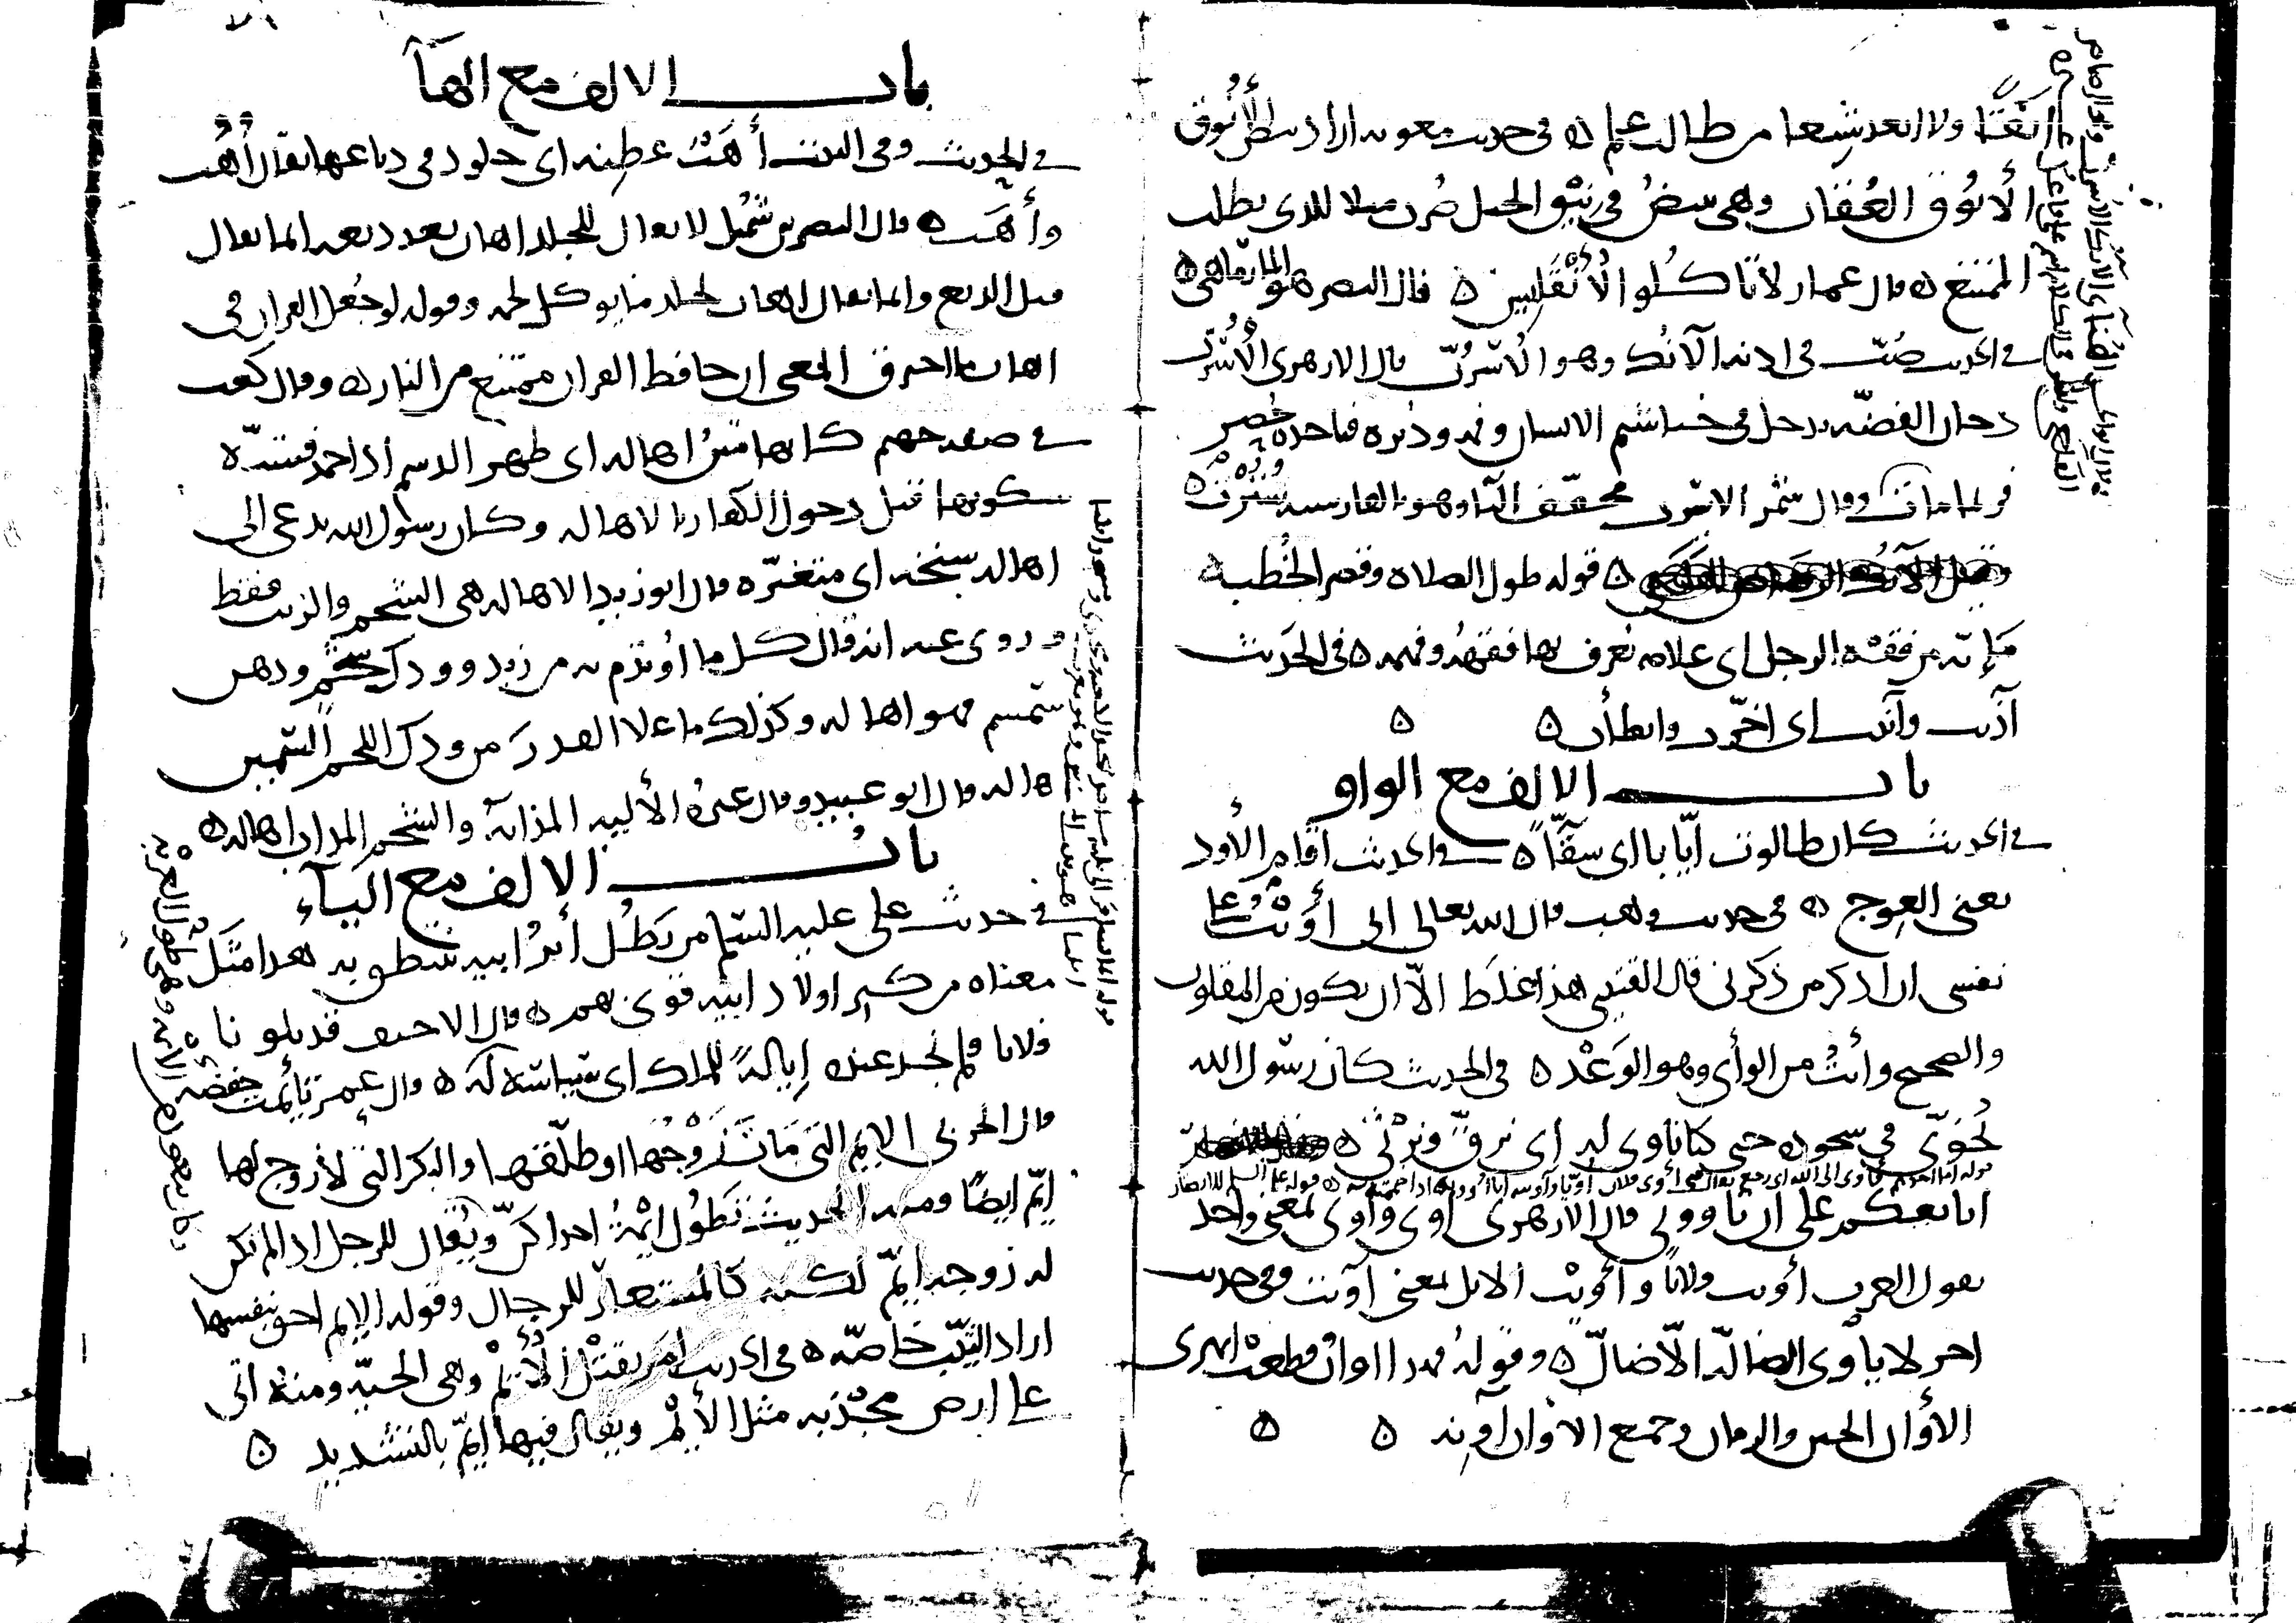 انقا ولا ابعد شبعا من طالب علم ه في حديث معويه اراد بيض الأنوق
الأنوق العقاب وهي تبيض في نيق الجبل ضرب مثلا للذي يطلب
الممتنع ه قال عمار لا تاكلوا الأنقليس ه قال النضر هو المارماهي ه
في الحديث صب في اذنه الآنك وهو الأسرب قال الازهري الأسرب
دخان الفضه يدخل في خياشيم الانسان وفمه ودبره فياخذه حصر
فربما مات وقال شمر الاسرب مخفف البا وهو بالفارسيه سرب ه
ه قوله طول الصلاه وقصر الخطبه
مإنه من فقه الرجل اي علامه يعرف بها فقهه وفهمه ه في الحديث
آذيت وآنيت اي اخرت وابطأت ه ه
باب الالف مع الواو
في الحديث كان طالوت ايابا اي سقا ه في الحديث اقام الأود
يعني العوج ه في حديث وهب قال الله تعالى اني أويت على
نفسي ان اذكر من ذكرني قال القتيبي هذا غلط الا ان يكون من المقلوب
والصحيح وأيت من الوأي وهو الوعد ه في الحديث كان رسول الله
يخوي في سجوده حتى كنا ناوي له اي نرق ونرثي ه
ابايعكم على ان تاووني قال الازهري اوى وآوى بمعنى واحد
يقول العرب أويت فلانا وأويت الابل بمعنى آويت وفي حديث
اخر لا ياوي الضالة الا ضال ه وقوله فهذا اوان قطعت ابهري
الأوان الحين والزمان وجمع الاوان آونه ه ه
باب الالف مع الهآ
في الحديث وفي البيت أهب عطنه اي جلود في دباغها يقال أهب
وأهب ه قال النضر بن شميل لا يقال للجلد اهاب بعد دبغه انما يقال
قبل الدبغ وانما يقال اهاب لجلد ما يوكل لحمه وقوله لو جعل القران في
اهاب ما احترق المعنى ان حافظ القران ممتنع من النار ه وقال كعب
في صفه جهنم كانها متن اهاله اي ظهر الدسم اذا جمد فشبه
سكونها قبل دخول الكفار بالاهاله وكان رسول الله يدعى الى
اهاله سنخه اي متغيره قال ابو زيد الاهاله هي الشحم والزيت فقط
وروي عنه انه قال كل ما اؤتدم به من زبد وودك شحم ودهن
سمسم فهو اهاله وكذلك ما علا القدر من ودك اللحم السمين
هاله قال ابو عبيد وقال غيره الألية المذابة والشحم المذاب اهاله ه
باب الالف مع اليآء
في حديث علي عليه السلم من يطل أير ابيه ينتطق به هذا مثل
معناه من كثر اولاد ابيه قوي بهم ه قال الاحنف قد بلونا
فلانا فلم نجد عنده إيالة للملك اي سياسه له ه وان عمر تأيمت حفصه
قال الحربي الايم التي مات زوجها او طلقها والبكر التي لا زوج لها
ايم ايضا ومنه الحديث تطول أيمة احداكن ويقال للرجل اذا لم يكن
له زوجه ايم لكنه كالمستعار للرجال وقوله الايم احق بنفسها
اراد الثيب خاصه ه في الحديث امر بقتل الأيم وهي الحيه ومنه اتى
على ارض مجدبه مثل الأيم ويقال فيها ايم بالتشديد ه